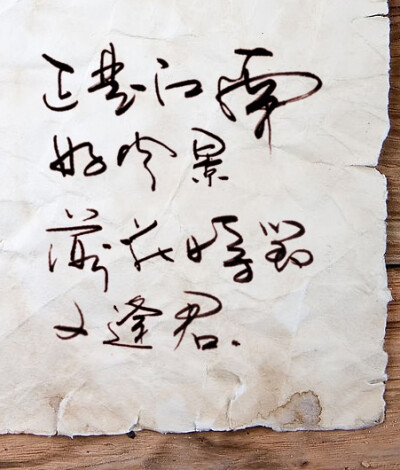 正是江南
好风景
落花時節
又逢君.